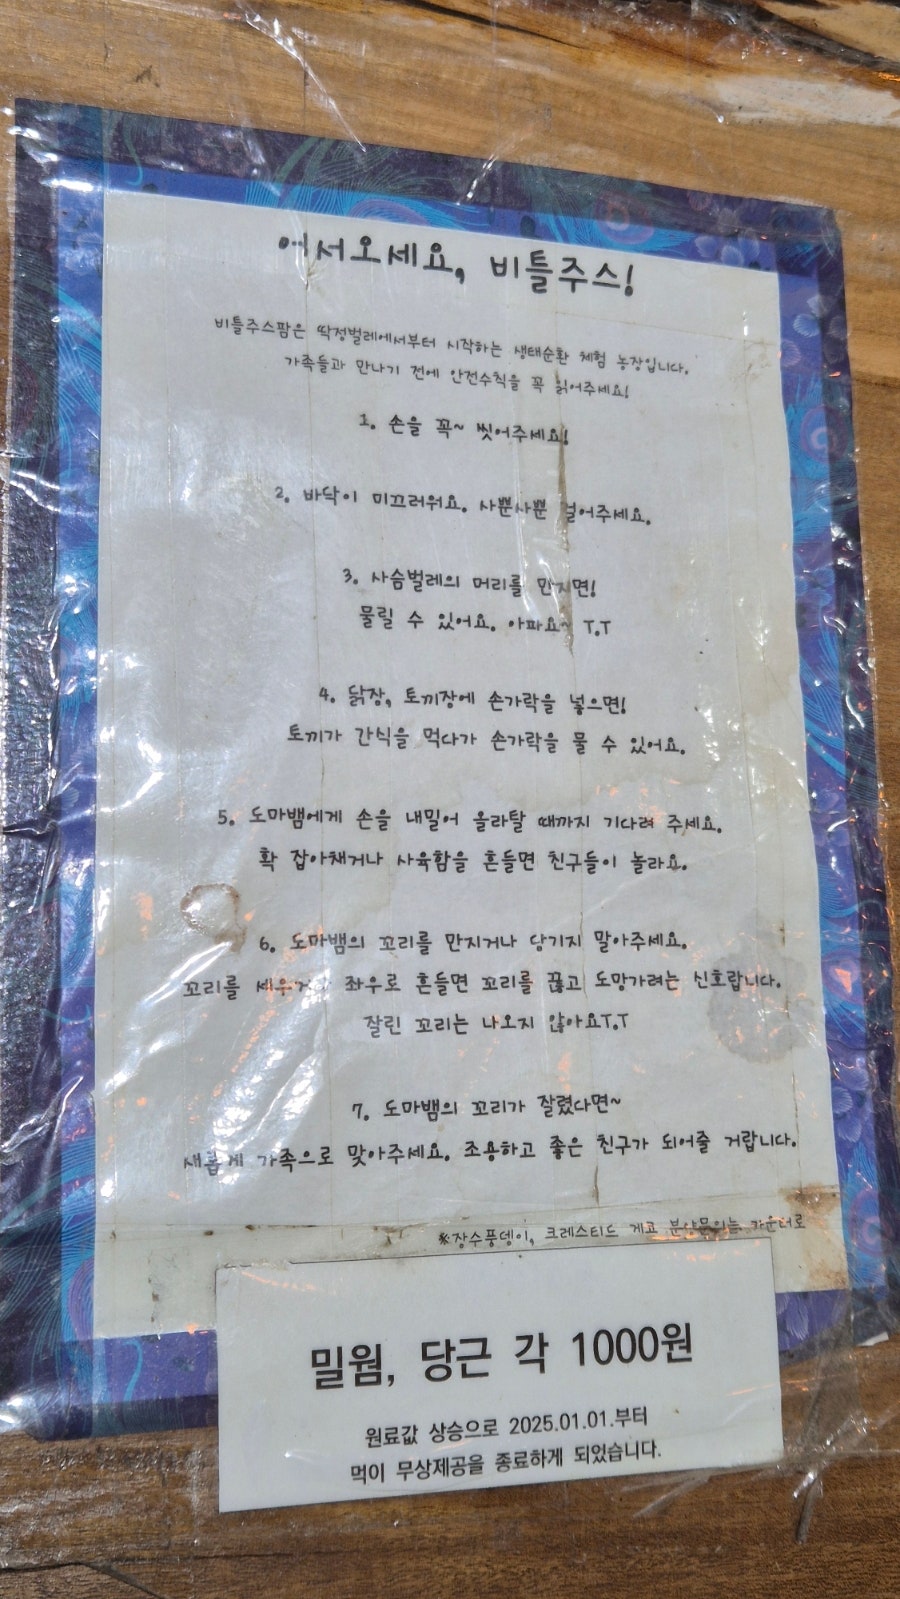 어서오세요, 비틀주스!
비틀주스팜은 딱정벌레에서부터 시작하는 생태순환 체험 농장입니다.
가족들과 만나기 전에 안전수칙을 꼭 읽어주세요!
1. 손을 꼭~ 씻어주세요!
2. 바닥이 미끄러워요. 사뿐사뿐 걸어주세요.
3. 사슴벌레의 머리를 만지면!
물릴 수 있어요. 아파요~ T.T
4. 닭장, 토끼장에 손가락을 넣으면!
토끼가 간식을 먹다가 손가락을 물 수 있어요.
5. 도마뱀에게 손을 내밀어 올라탈 때까지 기다려 주세요.
확 잡아채거나 사육함을 흔들면 친구들이 놀라요.
6. 도마뱀의 꼬리를 만지거나 당기지 말아주세요.
꼬리를 세우거나 좌우로 흔들면 꼬리를 끊고 도망가려는 신호랍니다.
잘린 꼬리는 나오지 않아요T.T
7. 도마뱀의 꼬리가 잘렸다면~
새롭게 가족으로 맞아주세요. 조용하고 좋은 친구가 되어줄 거랍니다.
※장수풍뎅이, 크레스티드 게코 분양문의는 카운터로
밀웜, 당근 각 1000원
원료값 상승으로 2025.01.01.부터
먹이 무상제공을 종료하게 되었습니다.